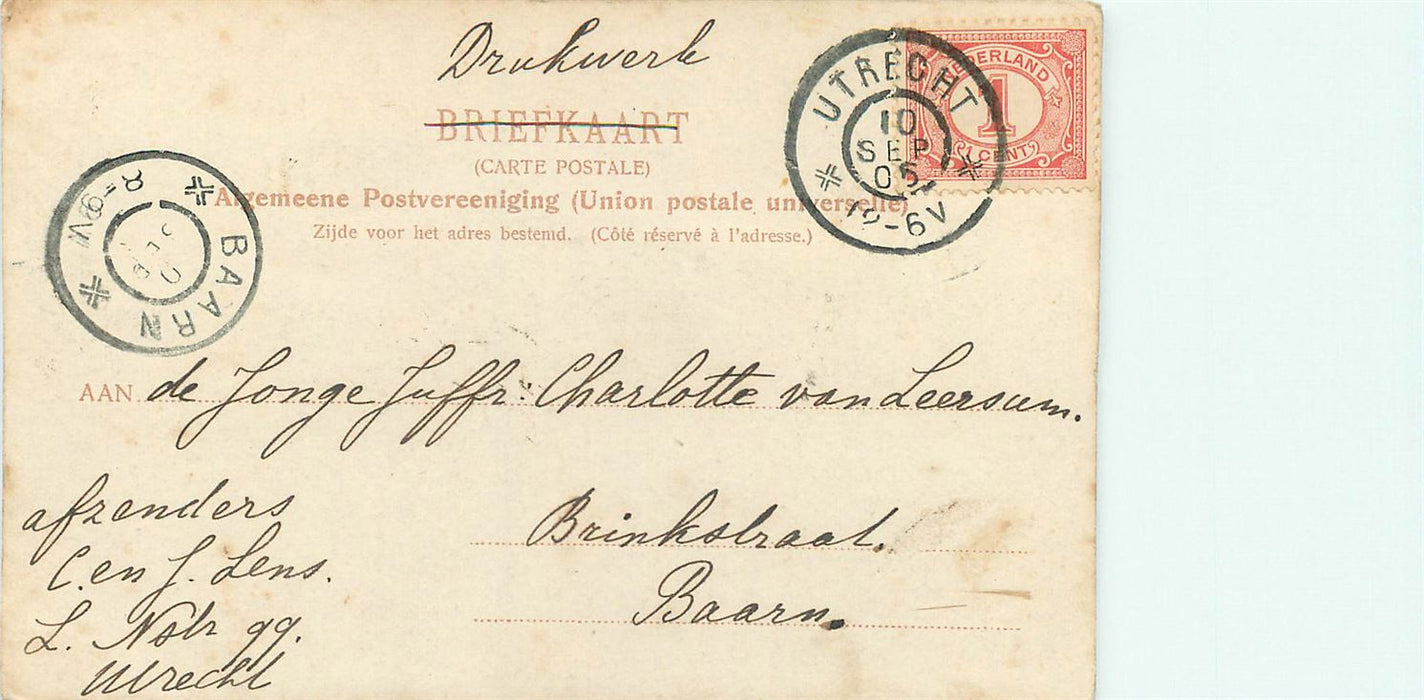 Drukwerk
BRIEFKAART
(CARTE POSTALE)
Algemeene Postvereeniging (Union postale universelle)
Zijde voor het adres bestemd. (Côté réservé à l'adresse.)
NEDERLAND
1
CENT
UTRECHT
10
SEP
05
12-6V
BAARN
8-9V
SEP
AAN de Jonge Juffr: Charlotte van Leersum.
Brinkstraat.
Baarn.
afzenders
C. en J. Lens.
L. Nstr 99.
Utrecht